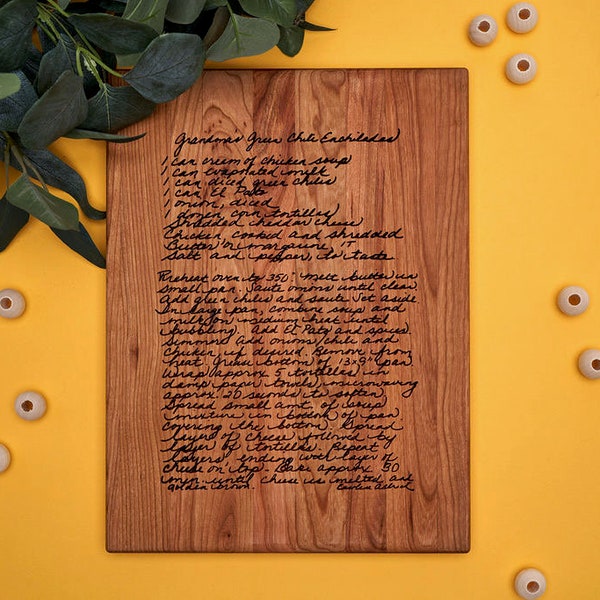 Grandma's Green Chili Enchiladas
1 can cream of chicken soup
1 can evaporated milk
1 can diced green chilies
1 can El Pato
1 onion, diced
1 dozen corn tortillas
Shredded cheddar cheese
Chicken, cooked and shredded
Butter or margarine, 1T
Salt and pepper, to taste
Preheat oven to 350°. Melt butter in
small pan. Saute onions until clear.
Add green chilies and saute. Set aside
In large pan, combine soup and
milk on medium heat until
bubbling. Add El Pato and spices.
Simmer. Add onions, chili and
chicken, if desired. Remove from
heat. Grease bottom of 13x9" pan.
Wrap approx 5 tortillas in
damp paper towels, microwaving
approx. 20 seconds to soften.
Spread small amt. of soup
mixture in bottom of pan
covering the bottom. Spread
layer of cheese followed by
layer of tortillas. Repeat
layers ending with layer of
cheese on top. Bake approx 30
min until cheese is melted and
golden brown.